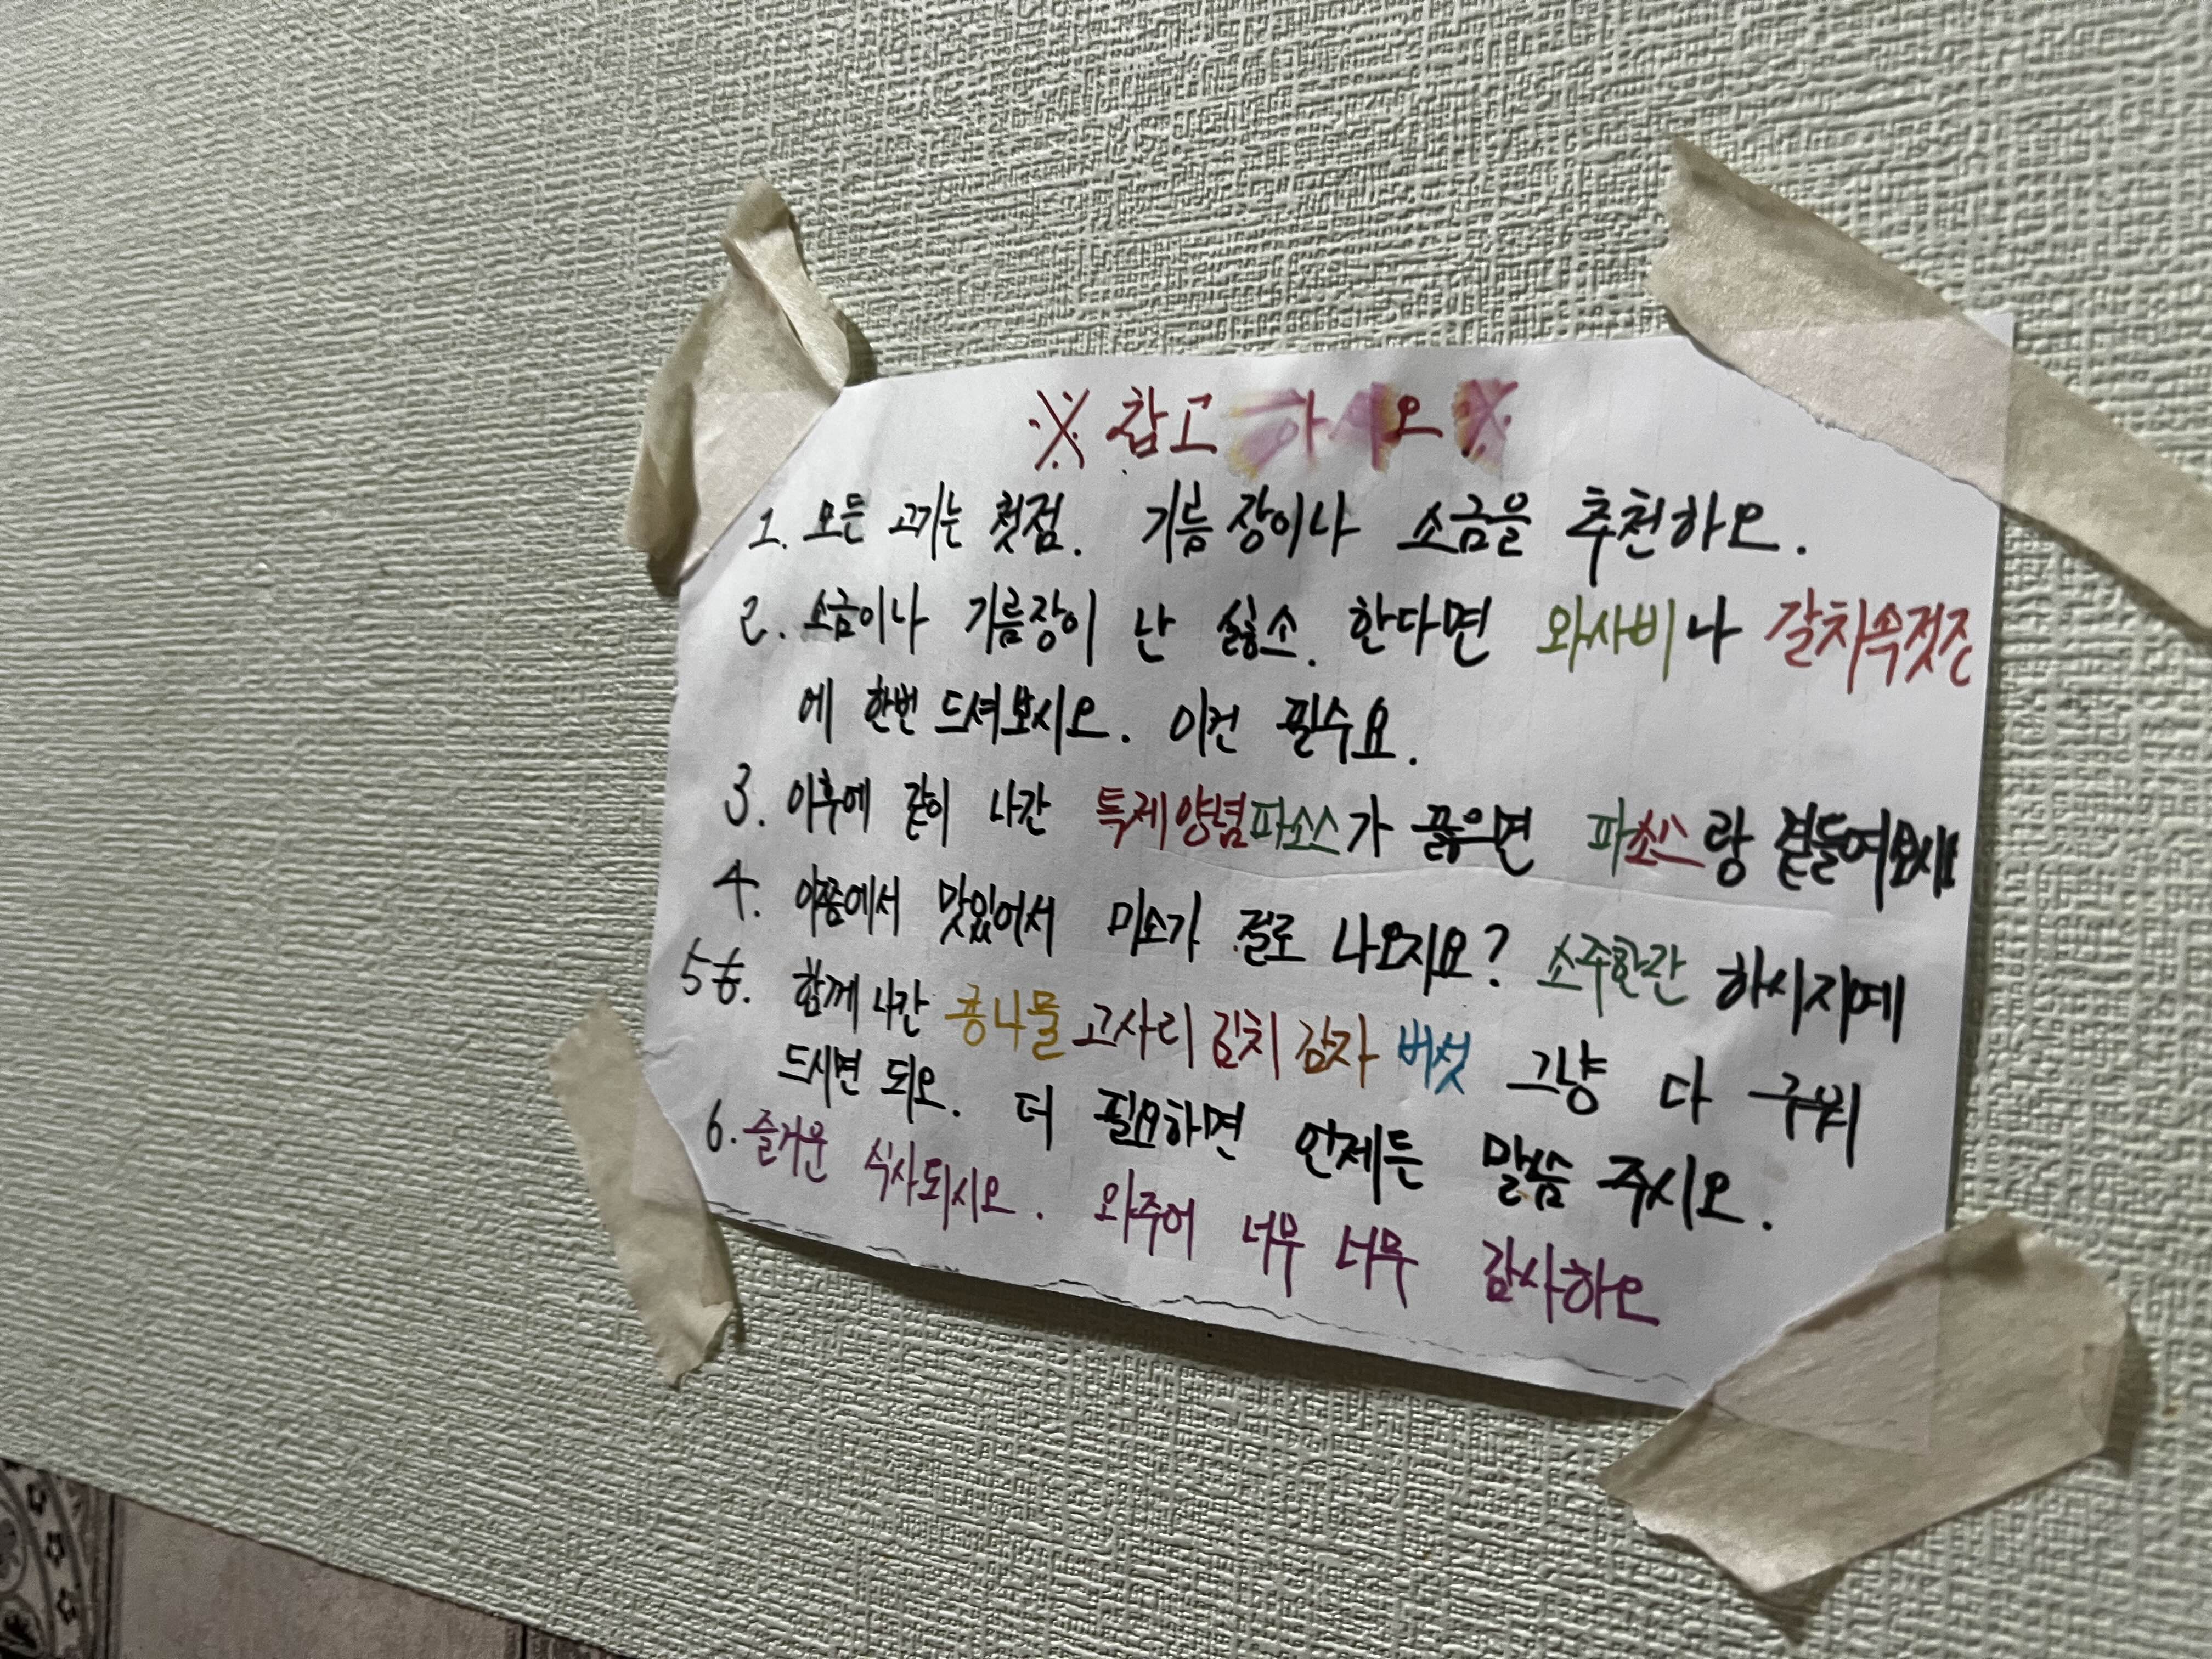 ※ 참고 하시오 ※
1. 모든 고기는 첫점. 기름장이나 소금을 추천하오.
2. 소금이나 기름장이 난 싫소. 한다면 와사비나 갈치속젓존
에 한번 드셔보시오. 이건 필수요.
3. 이후에 같이 나간 특제양념파소스가 끓으면 파소스랑 곁들여보시오
4. 이쯤에서 맛있어서 미소가 절로 나오지요? 소주한잔 하시지예
5 6. 함께 나간 콩나물 고사리 김치 감자 버섯 그냥 다 구워
드시면 되오. 더 필요하면 언제든 말씀 주시오.
6. 즐거운 식사되시오. 와주어 너무 너무 감사하오